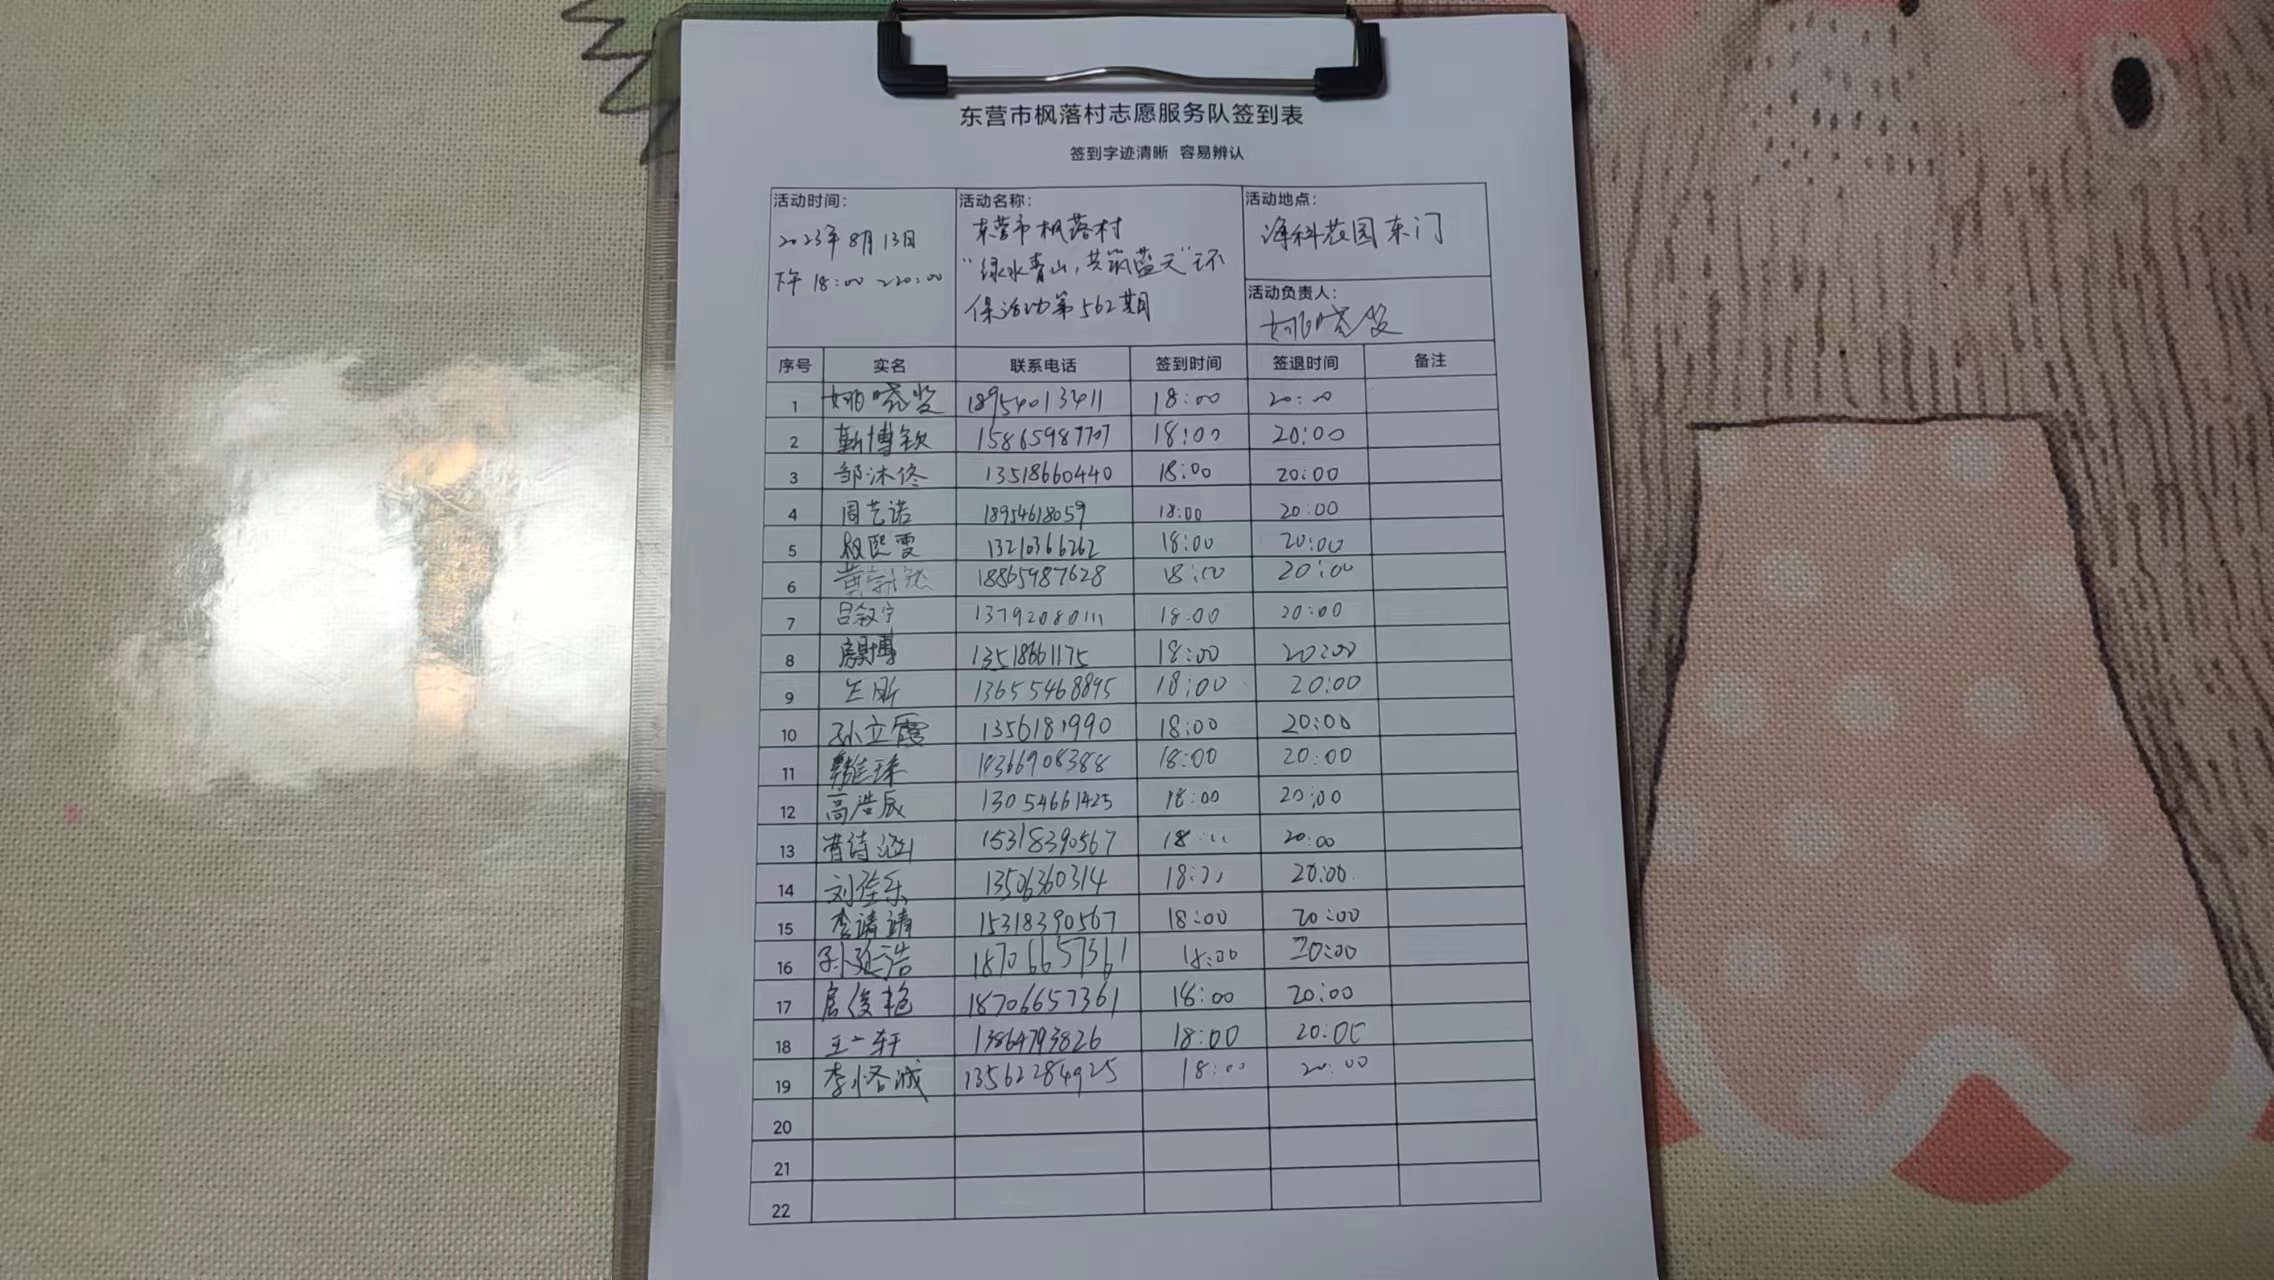 东营市枫落村志愿服务队签到表
签到字迹清晰 容易辨认
活动时间：
2023年8月13日
下午 18:00 ~20:00
活动名称：
东营市枫落村
“绿水青山，共筑蓝天”环
保活动第562期
活动地点：
海科花园东门
活动负责人：
序号 实名 联系电话 签到时间 签退时间 备注
1 18954013411 18:00 20:00
2 靳博钦 15865987707 18:00 20:00
3 邹沐佟 13518660440 18:00 20:00
4 周艺诺 18954618059 18:00 20:00
5 权熙雯 13210366262 18:00 20:00
6 18865987628 18:00 20:00
7 吕叙宁 13792080111 18:00 20:00
8 13518661175 18:00 20:00
9 13655468895 18:00 20:00
10 孙立霞 1356181990 18:00 20:00
11 18:00 20:00
12 高浩辰 13054661425 18:00 20:00
13 15318390567 20:00
14 刘佳乐 13506360314 20:00
15 李靖靖 15318390567 18:00 20:00
16 孙延浩 18706657361 18:00 20:00
17 18706657361 18:00 20:00
18 王一轩 13864793826 18:00 20:00
19 13562284925 18:00 20:00
20
21
22